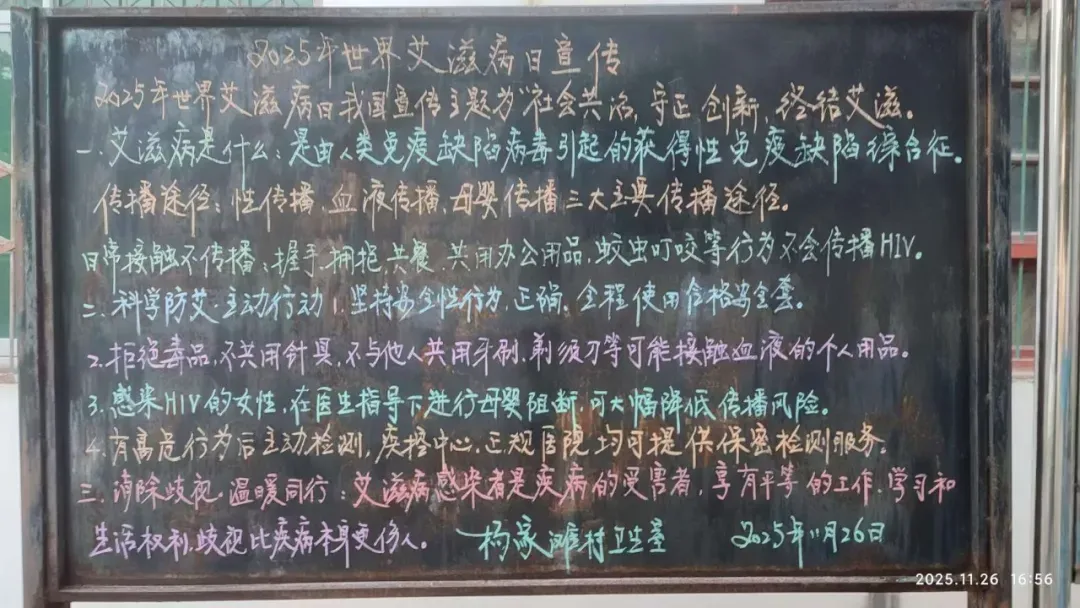 2025年世界艾滋病日宣传
2025年世界艾滋病日我国宣传主题为“社会共治,守正创新,终结艾滋。
一.艾滋病是什么:是由人类免疫缺陷病毒引起的获得性免疫缺陷综合征。
传播途径:性传播,血液传播,母婴传播三大主要传播途径。
日常接触不传播:握手,拥抱,共餐,共用办公用品,蚊虫叮咬等行为不会传播HIV。
二.科学防艾.主动行动1.坚持安全性行为,正确,全程使用合格安全套。
2.拒绝毒品,不共用针具,不与他人共用牙刷,剃须刀等可能接触血液的个人用品。
3.感染HIV的女性,在医生指导下进行母婴阻断,可大幅降低传播风险。
4.有高危行为后主动检测,疾控中心,正规医院均可提供保密检测服务。
三.消除歧视.温暖同行:艾滋病感染者是疾病的受害者,享有平等的工作.学习和
生活权利,歧视比疾病本身更伤人。 杨家滩村卫生室 2025年11月26日
2025.11.26 16:56